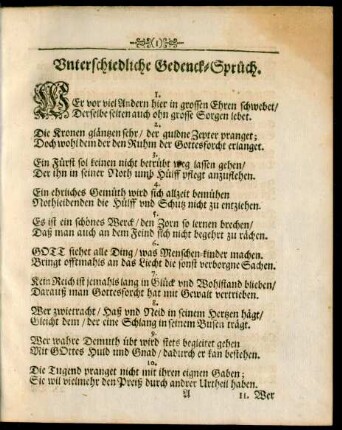 (1)
Vnterschiedliche Gedenck-Sprüch.
1.
WEr vor viel Andern hier in grossen Ehren schwebet/
Derselbe selten auch ohn grosse Sorgen lebet.
2.
Die Kronen gläntzen sehr/ der guldne Zepter pranget;
Doch wohl dem der den Ruhm der Gottesforcht erlanget.
3.
Ein Fürst sol keinen nicht betrübt weg lassen gehen/
Der ihn in seiner Noth umb Hülff pflegt anzuflehen.
4.
Ein ehrliches Gemüth wird sich allzeit bemühen
Nothleidenden die Hülff vnd Schutz nicht zu entziehen.
5.
Es ist ein schönes Werck/ den Zorn so lernen brechen/
Daß man auch an dem Feind sich nicht begehrt zu rächen.
6.
GOTT siehet alle Ding/ was Menschen-kinder machen.
Bringt offtmahls an das Liecht die sonst verborgne Sachen.
7.
Kein Reich ist jemahls lang in Glück vnd Wohlstand blieben/
Darauß man Gottesforcht hat mit Gewalt vertrieben.
8.
Wer zwietracht/ Haß vnd Neid in seinem Hertzen hägt/
Gleicht dem/ der eine Schlang in seinem Busen trägt.
9.
Wer wahre Demuth übt wird stets begleitet gehen
Mit GOttes Huld und Gnad/ dadurch er kan bestehen.
10.
Die Tugend pranget nicht mit ihren eignen Gaben;
Sie wil vielmehr den Preiß durch andrer Urtheil haben.
A 11. Wer